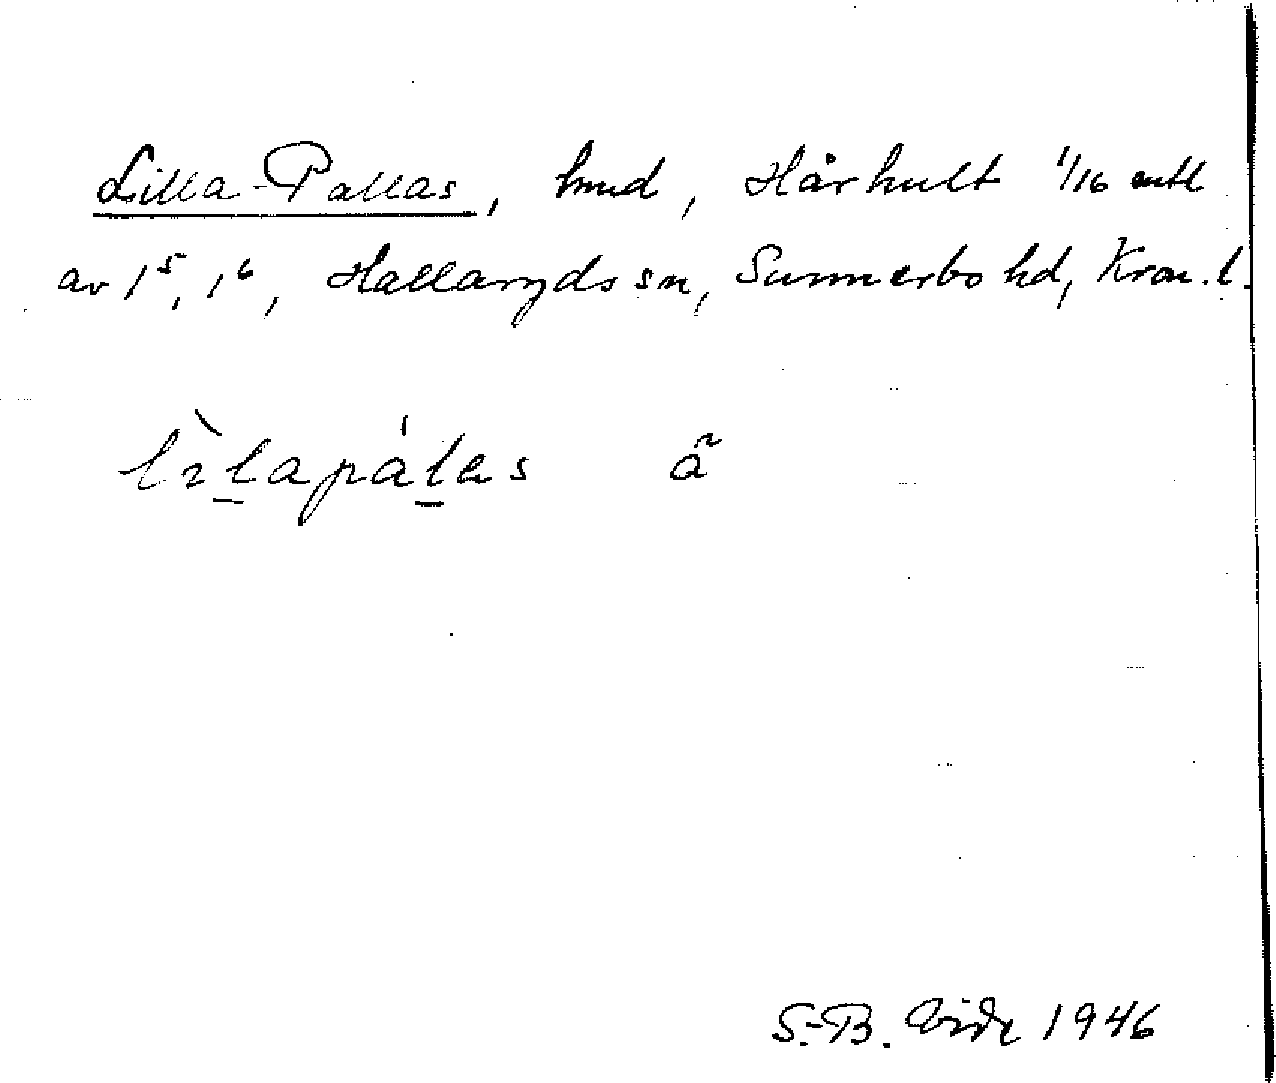 Lilla-Pallas, hmd, Hårhult 1/16 mtl
av 1⁵, 1⁶, Hallaryds sn, Sunnerbo hd, Kron. l.
lìl̲apál̲as å̃
S.-B. Vide 1946